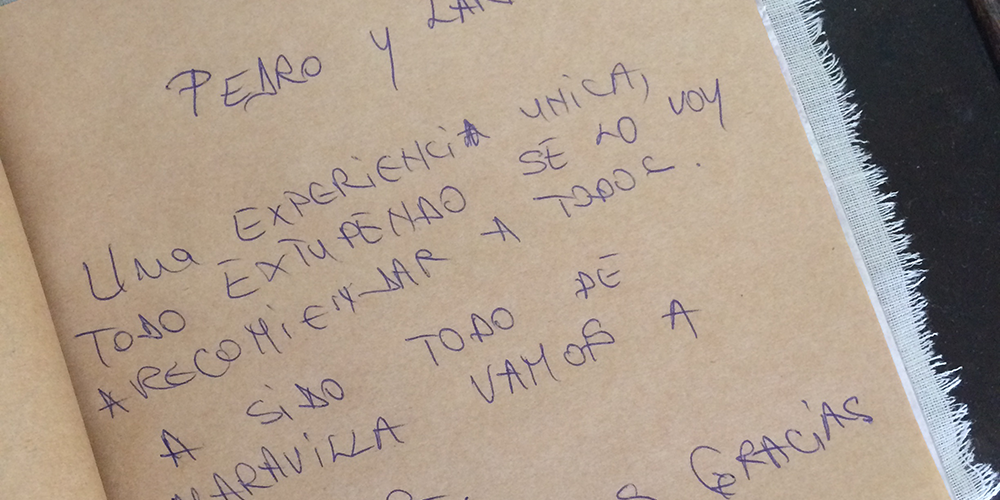 PEDRO Y
UNA EXPERIENCIA UNICA,
TODO EXTUPENDO SE LO VOY
A RECOMIENDAR A TODOS.
A SIDO TODO DE
MARAVILLA VAMOS A
GRACIAS